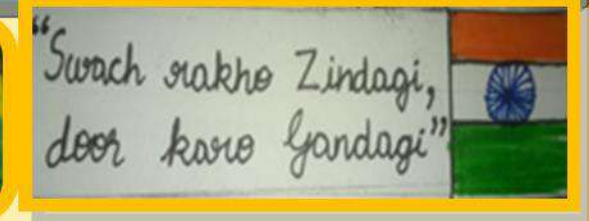 “Swach rakho Zindagi,
door karo Gandagi”